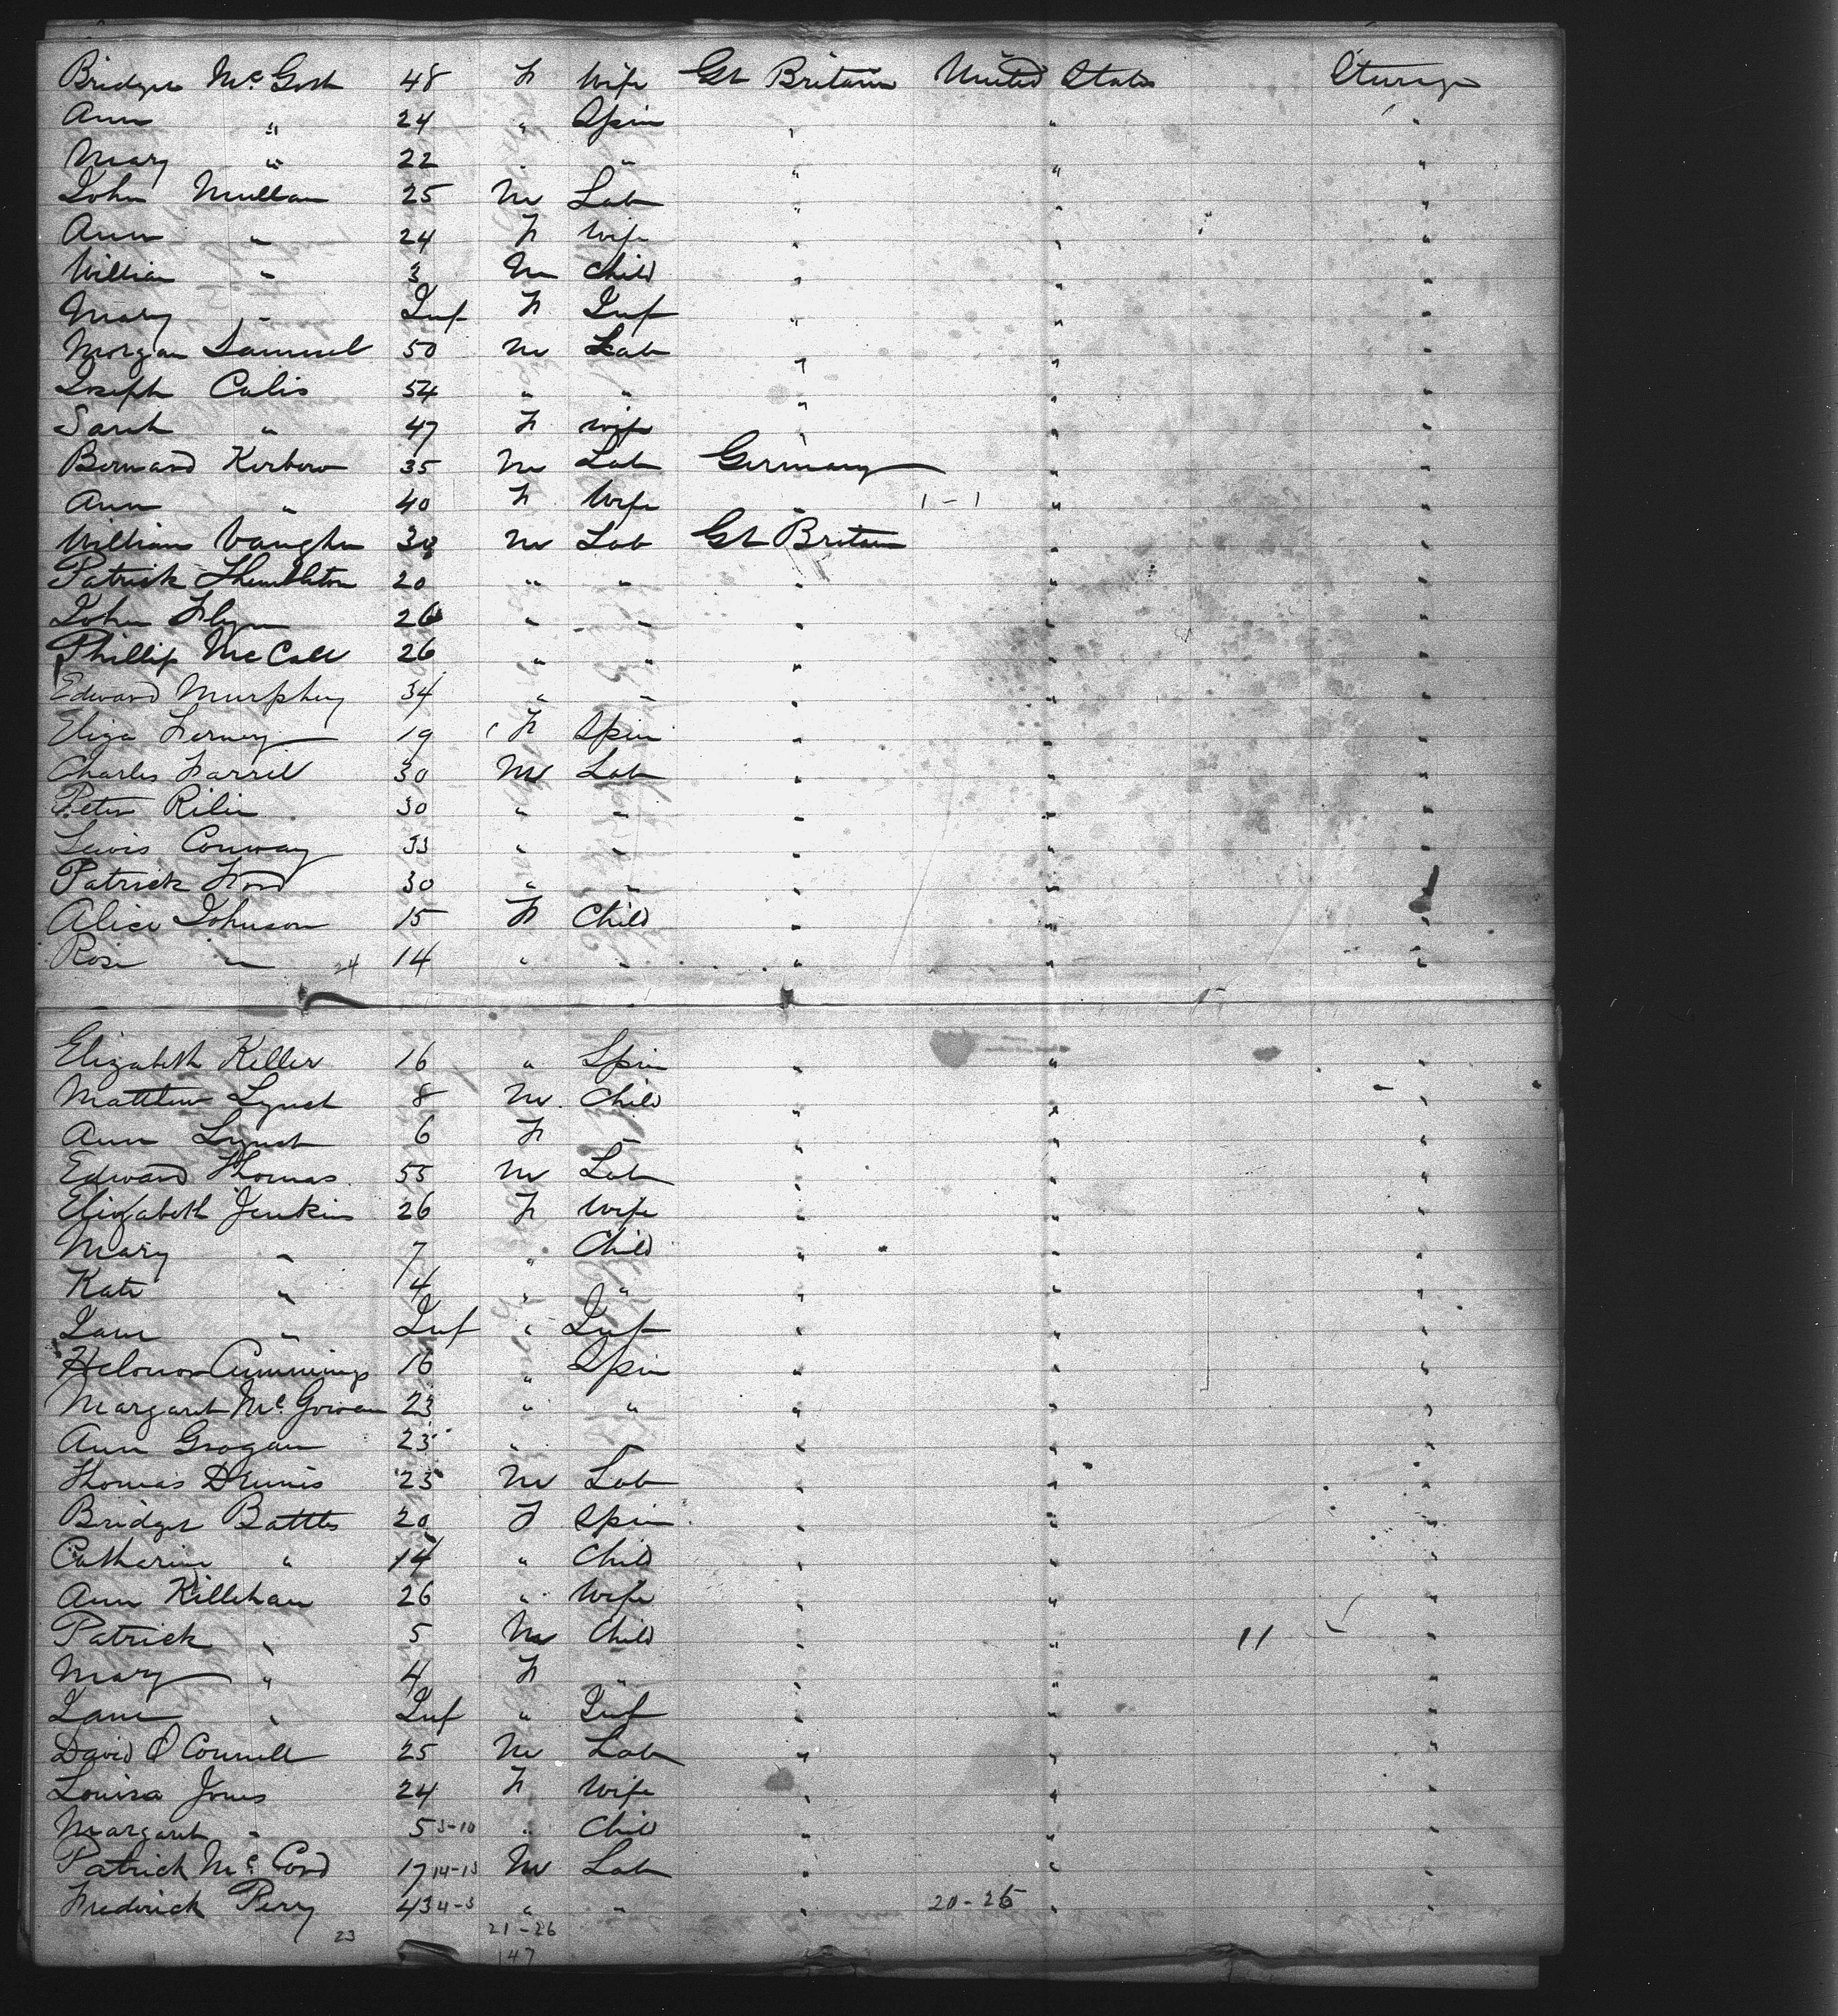 Bridget Mc Gosh 48 F Wife Gt Britain United States Steerage
Ann " 24 " Spin " " "
Mary " 22 " " " " "
John Mullan 25 M Lab " " "
Ann " 24 F Wife " " "
William " 3 M Child " " "
Mary " Inf F Inf " " "
Morgan Samuel 50 M Lab " " "
Joseph Calis 54 " " " " "
Sarah " 47 F Wife " " "
Bernard Kerbow 35 M Lab Germany " "
Ann " 40 F Wife " 1-1 " "
William Vaughn 30 M Lab Gt Britain " "
Patrick 20 " " " " "
John Flyn 26 " " " " "
Phillip McCall 26 " " " " "
Edward Murphey 34 " " " " "
Eliza 19 F Spin " " "
Charles Farrel 30 M Lab " " "
Peter Rilie 30 " " " " "
Lewis Conway 33 " " " " "
Patrick Ford 30 " " " " "
Alice Johnson 15 F Child " " "
Rose " 24 14 " " " " "
Elizabeth Keller 16 " Spin " " "
Matthew Lynch 8 M Child " " "
Ann Lynch 6 F " " " "
Edward Thomas 55 M Lab " " "
Elizabeth Jenkins 26 F Wife " " "
Mary " 7 " Child " " "
Kate " 4 " " " " "
Jane " Inf " Inf " " "
Cummings 16 " Spin " " "
Margaret Mc Gowan 23 " " " " "
Ann Grogan 23 " " " " "
Thomas Dennis 23 M Lab " " "
Bridget Battles 20 F Spin " " "
Catharine " 14 " Child " " "
Ann Killehan 26 " Wife " " "
Patrick " 5 M Child " " 11 "
Mary " 4 F " " " "
Jane " Inf " Inf " " "
David O Connell 25 M Lab " " "
Louisa Jones 24 F Wife " " "
Margaret " 5 3-10 " Child " " "
Patrick Mc Cord 17 14-13 M Lab " " "
Frederick Perry 43 4-3 " " " 20-26 " "
23 21-26
147